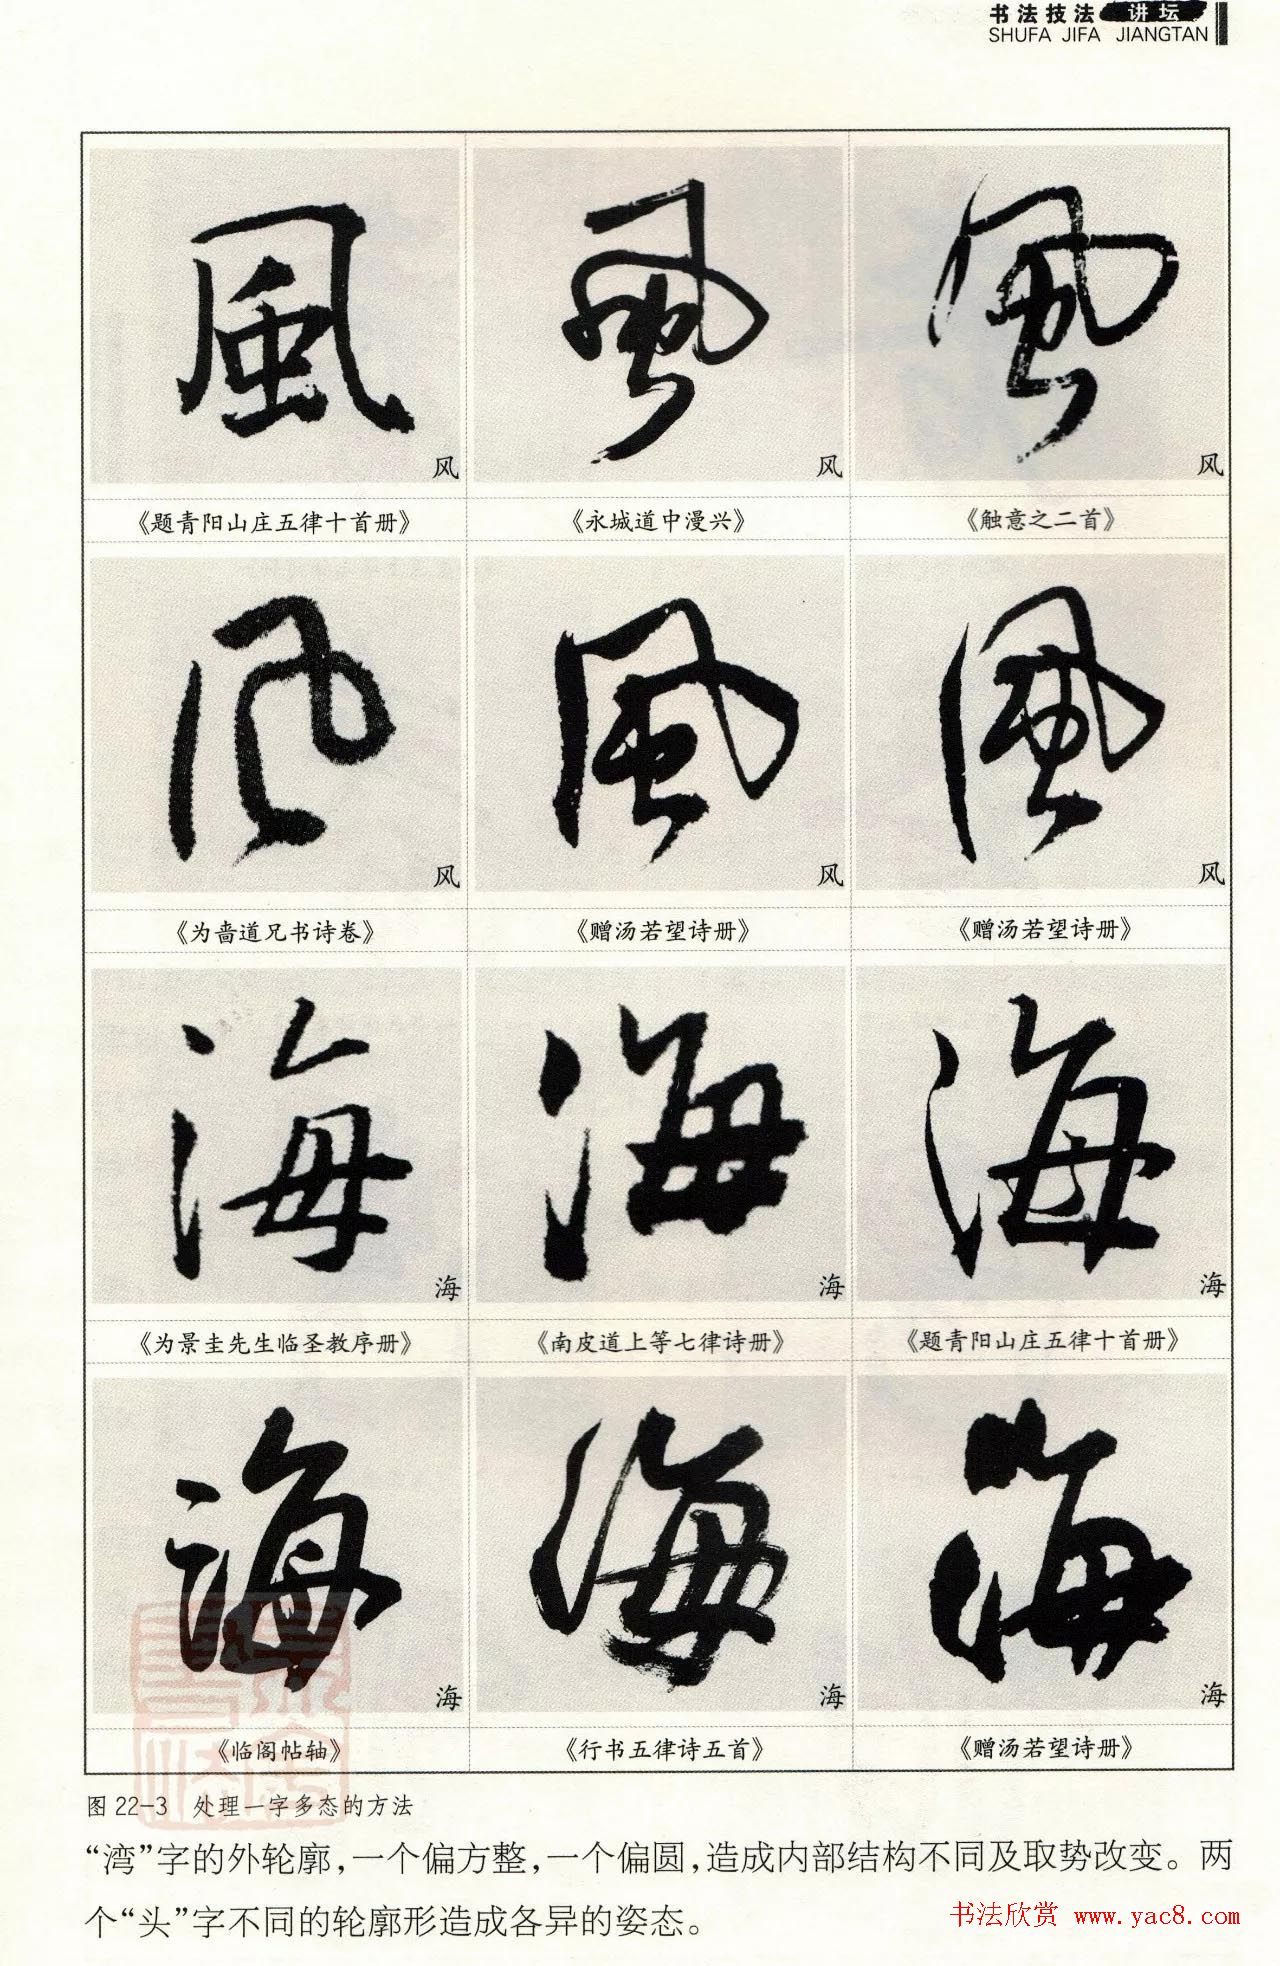 书法技法 讲坛
SHUFA JIFA JIANGTAN
風 風 風
风 风 风
《题青阳山庄五律十首册》 《永城道中漫兴》 《触意之二首》
风 風 風
风 风 风
《为啬道兄书诗卷》 《赠汤若望诗册》 《赠汤若望诗册》
海 海 海
海 海 海
《为景圭先生临圣教序册》 《南皮道上等七律诗册》 《题青阳山庄五律十首册》
海 海 海
海 海 海
《临阁帖轴》 《行书五律诗五首》 《赠汤若望诗册》
图 22-3 处理一字多态的方法
“湾”字的外轮廓，一个偏方整，一个偏圆，造成内部结构不同及取势改变。两
个“头”字不同的轮廓形造成各异的姿态。
书法欣赏 www.yac8.com